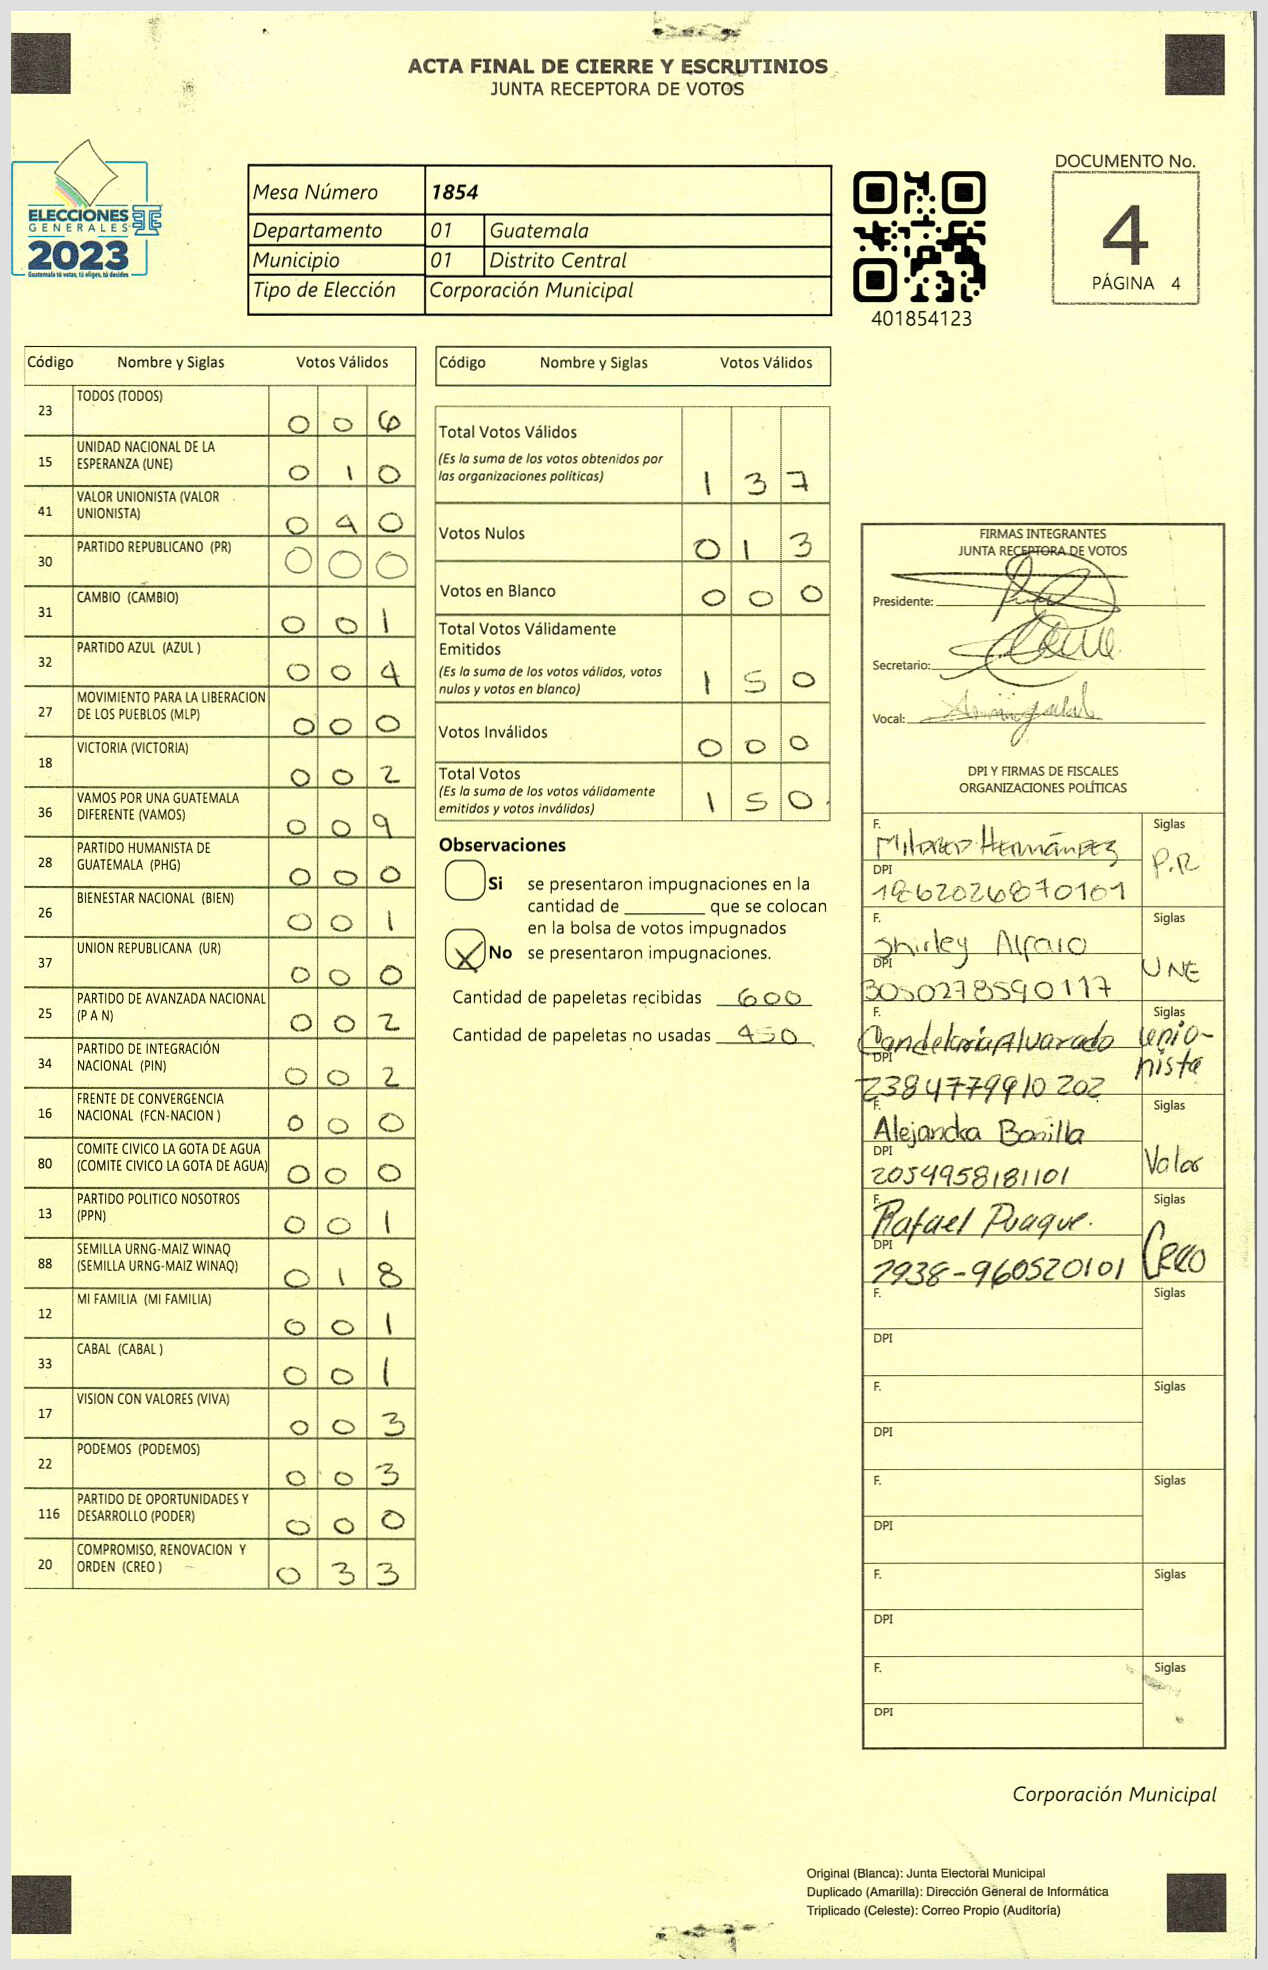 ACTA FINAL DE CIERRE Y ESCRUTINIOS
JUNTA RECEPTORA DE VOTOS
ELECCIONES
GENERALES
2023
Guatemala tú votas, tú eliges, tú decides
Mesa Número 1854
Departamento 01 Guatemala
Municipio 01 Distrito Central
Tipo de Elección Corporación Municipal
401854123
DOCUMENTO No.
4
PÁGINA 4
Código Nombre y Siglas Votos Válidos
23 TODOS (TODOS) 0 0 6
15 UNIDAD NACIONAL DE LA
ESPERANZA (UNE) 0 1 0
41 VALOR UNIONISTA (VALOR
UNIONISTA) 0 4 0
30 PARTIDO REPUBLICANO (PR) 0 0 0
31 CAMBIO (CAMBIO) 0 0 1
32 PARTIDO AZUL (AZUL ) 0 0 4
27 MOVIMIENTO PARA LA LIBERACION
DE LOS PUEBLOS (MLP) 0 0 0
18 VICTORIA (VICTORIA) 0 0 2
36 VAMOS POR UNA GUATEMALA
DIFERENTE (VAMOS) 0 0 9
28 PARTIDO HUMANISTA DE
GUATEMALA (PHG) 0 0 0
26 BIENESTAR NACIONAL (BIEN) 0 0 1
37 UNION REPUBLICANA (UR) 0 0 0
25 PARTIDO DE AVANZADA NACIONAL
(P A N) 0 0 2
34 PARTIDO DE INTEGRACIÓN
NACIONAL (PIN) 0 0 2
16 FRENTE DE CONVERGENCIA
NACIONAL (FCN-NACION ) 0 0 0
80 COMITE CIVICO LA GOTA DE AGUA
(COMITE CIVICO LA GOTA DE AGUA) 0 0 0
13 PARTIDO POLITICO NOSOTROS
(PPN) 0 0 1
88 SEMILLA URNG-MAIZ WINAQ
(SEMILLA URNG-MAIZ WINAQ) 0 1 8
12 MI FAMILIA (MI FAMILIA) 0 0 1
33 CABAL (CABAL ) 0 0 1
17 VISION CON VALORES (VIVA) 0 0 3
22 PODEMOS (PODEMOS) 0 0 3
116 PARTIDO DE OPORTUNIDADES Y
DESARROLLO (PODER) 0 0 0
20 COMPROMISO, RENOVACION Y
ORDEN (CREO ) 0 3 3
Código Nombre y Siglas Votos Válidos
Total Votos Válidos
(Es la suma de los votos obtenidos por
las organizaciones políticas) 1 3 7
Votos Nulos 0 1 3
Votos en Blanco 0 0 0
Total Votos Válidamente
Emitidos
(Es la suma de los votos válidos, votos
nulos y votos en blanco) 1 5 0
Votos Inválidos 0 0 0
Total Votos
(Es la suma de los votos válidamente
emitidos y votos inválidos) 1 5 0
Observaciones
Si se presentaron impugnaciones en la
cantidad de ________ que se colocan
en la bolsa de votos impugnados
X No se presentaron impugnaciones.
Cantidad de papeletas recibidas 600
Cantidad de papeletas no usadas 450
FIRMAS INTEGRANTES
JUNTA RECEPTORA DE VOTOS
Presidente:
Secretario:
Vocal:
DPI Y FIRMAS DE FISCALES
ORGANIZACIONES POLÍTICAS
F. Mildred Hernández Siglas
DPI P.R
1862026870101
F. Shirley Alfaro Siglas
DPI UNE
3050278590117
F. Candelaria Alvarado Siglas
DPI Unio-
nista
2384779910202
F. Alejandra Bonilla Siglas
DPI Valor
2054958181101
F. Rafael Siglas
DPI Creo
2938-960520101
F. Siglas
DPI
F. Siglas
DPI
F. Siglas
DPI
F. Siglas
DPI
F. Siglas
DPI
Corporación Municipal
Original (Blanca): Junta Electoral Municipal
Duplicado (Amarilla): Dirección General de Informática
Triplicado (Celeste): Correo Propio (Auditoría)